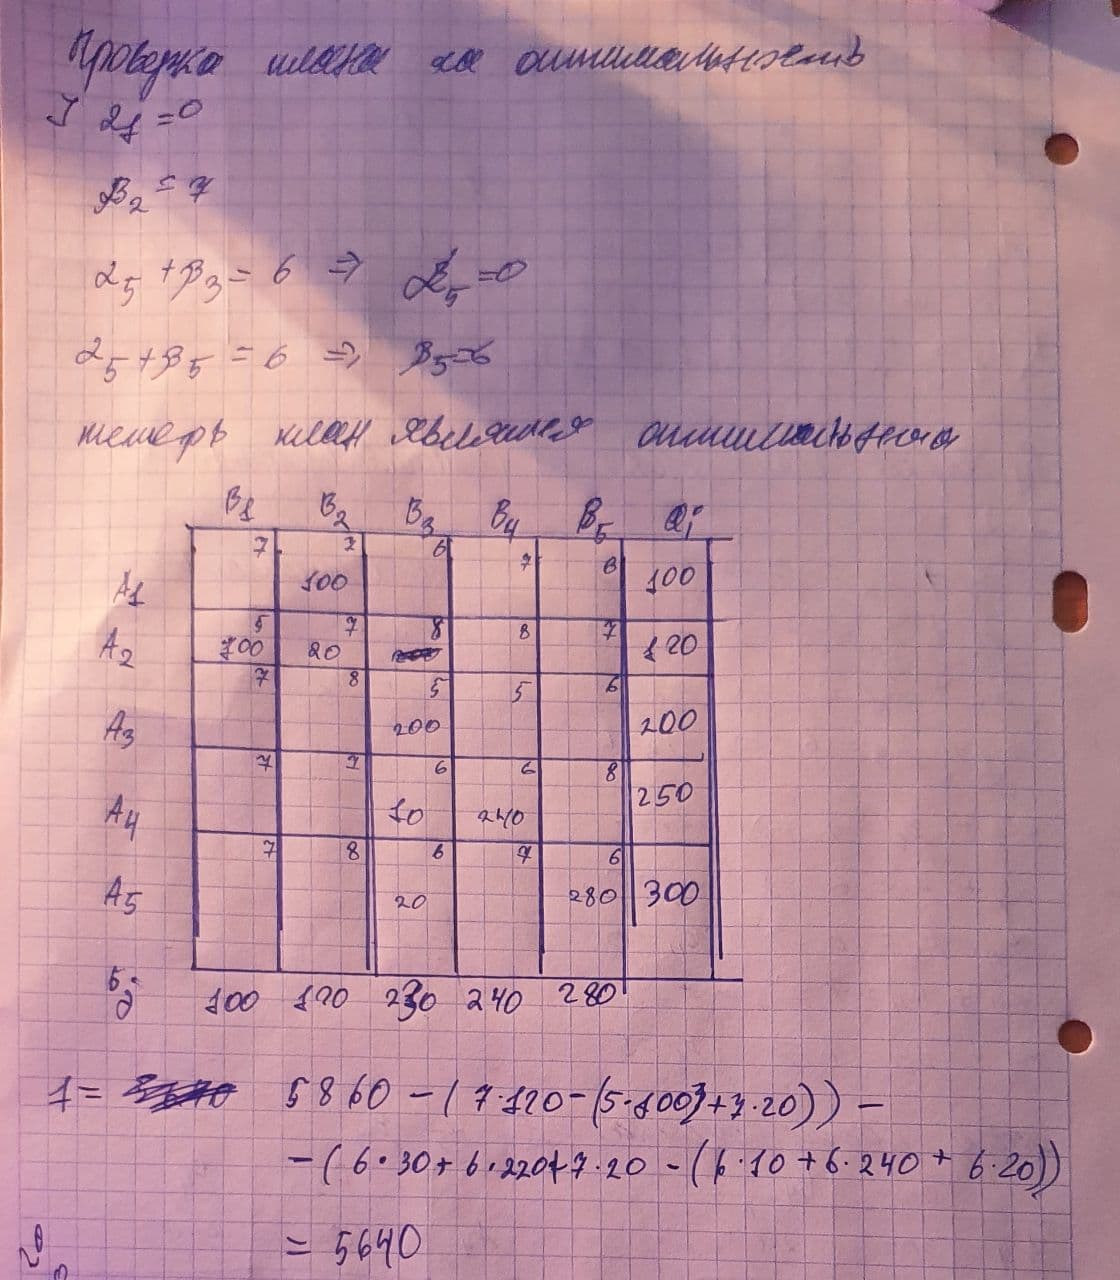 Проверка плана на оптимальность
I α1 = 0
β2 = 7
α5 + β3 = 6 ⇒ α5 = 0
α5 + β5 = 6 ⇒ β5 = 6
теперь план является оптимальным
B1 B2 B3 B4 B5 ai
7 7 6 7 8
A1 100 100
5 7 8 8 7
A2 100 20 120
7 8 5 5 6
A3 200 200
7 7 6 6 8
A4 10 240 250
7 8 6 7 6
A5 20 280 300
bj 100 120 230 240 280
1 = 5860 - (7·120 - (5·100 + 7·20)) -
- (6·30 + 6·220 + 7·20 - (6·10 + 6·240 + 6·20))
= 5640